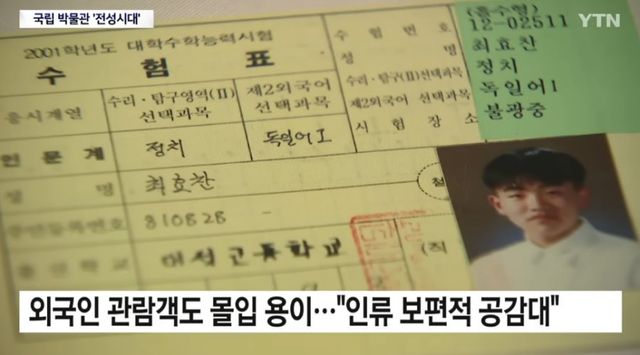 국립 박물관 '전성시대'
YTN
2001학년도 대학수학능력시험
수험표
응시계열
수리·탐구영역(Ⅱ)
선택과목
제2외국어
선택과목
인문계
정치
독일어Ⅰ
성 명
최효찬
810828
고등학교
(직
수험번호
성 명
수리·탐구(Ⅱ)선택과목
제2외국어 선택과목
시험장소
12-02511
최효찬
정치
독일어Ⅰ
불광중
외국인 관람객도 몰입 용이…"인류 보편적 공감대"